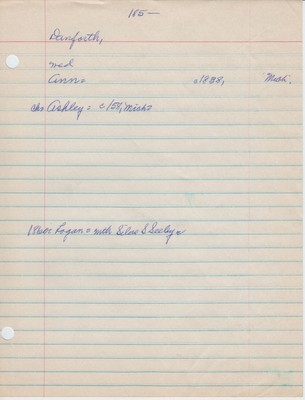 185—
Danforth,
med
Ann= c1838, Mich.
chr Ashley= c/58, Mich=
Logan= with Silas S Seeley=